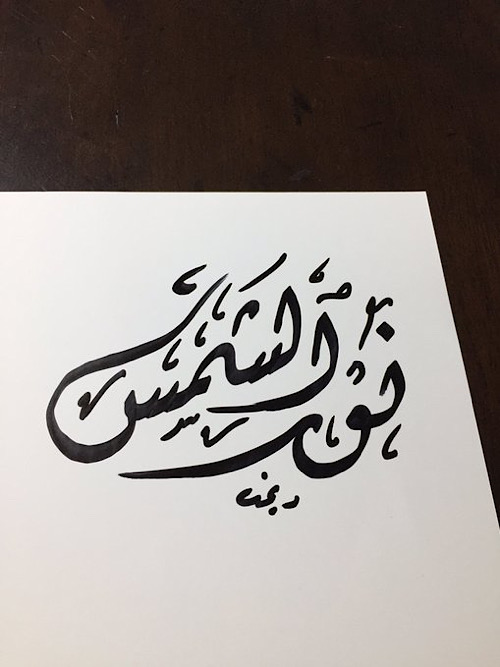 نور الشمس